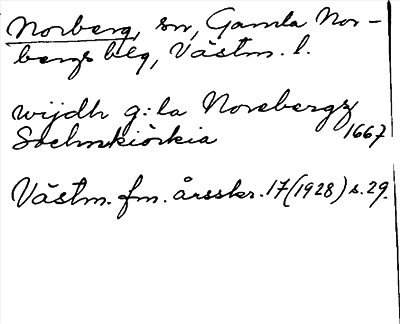 Norberg, sn, Gamla Nor-
bergs blg, Västm. l.
wijdh g:la Norebergz
Sochnkiörkia 1667
Västm. fm. årsskr. 17 (1928) s. 29.